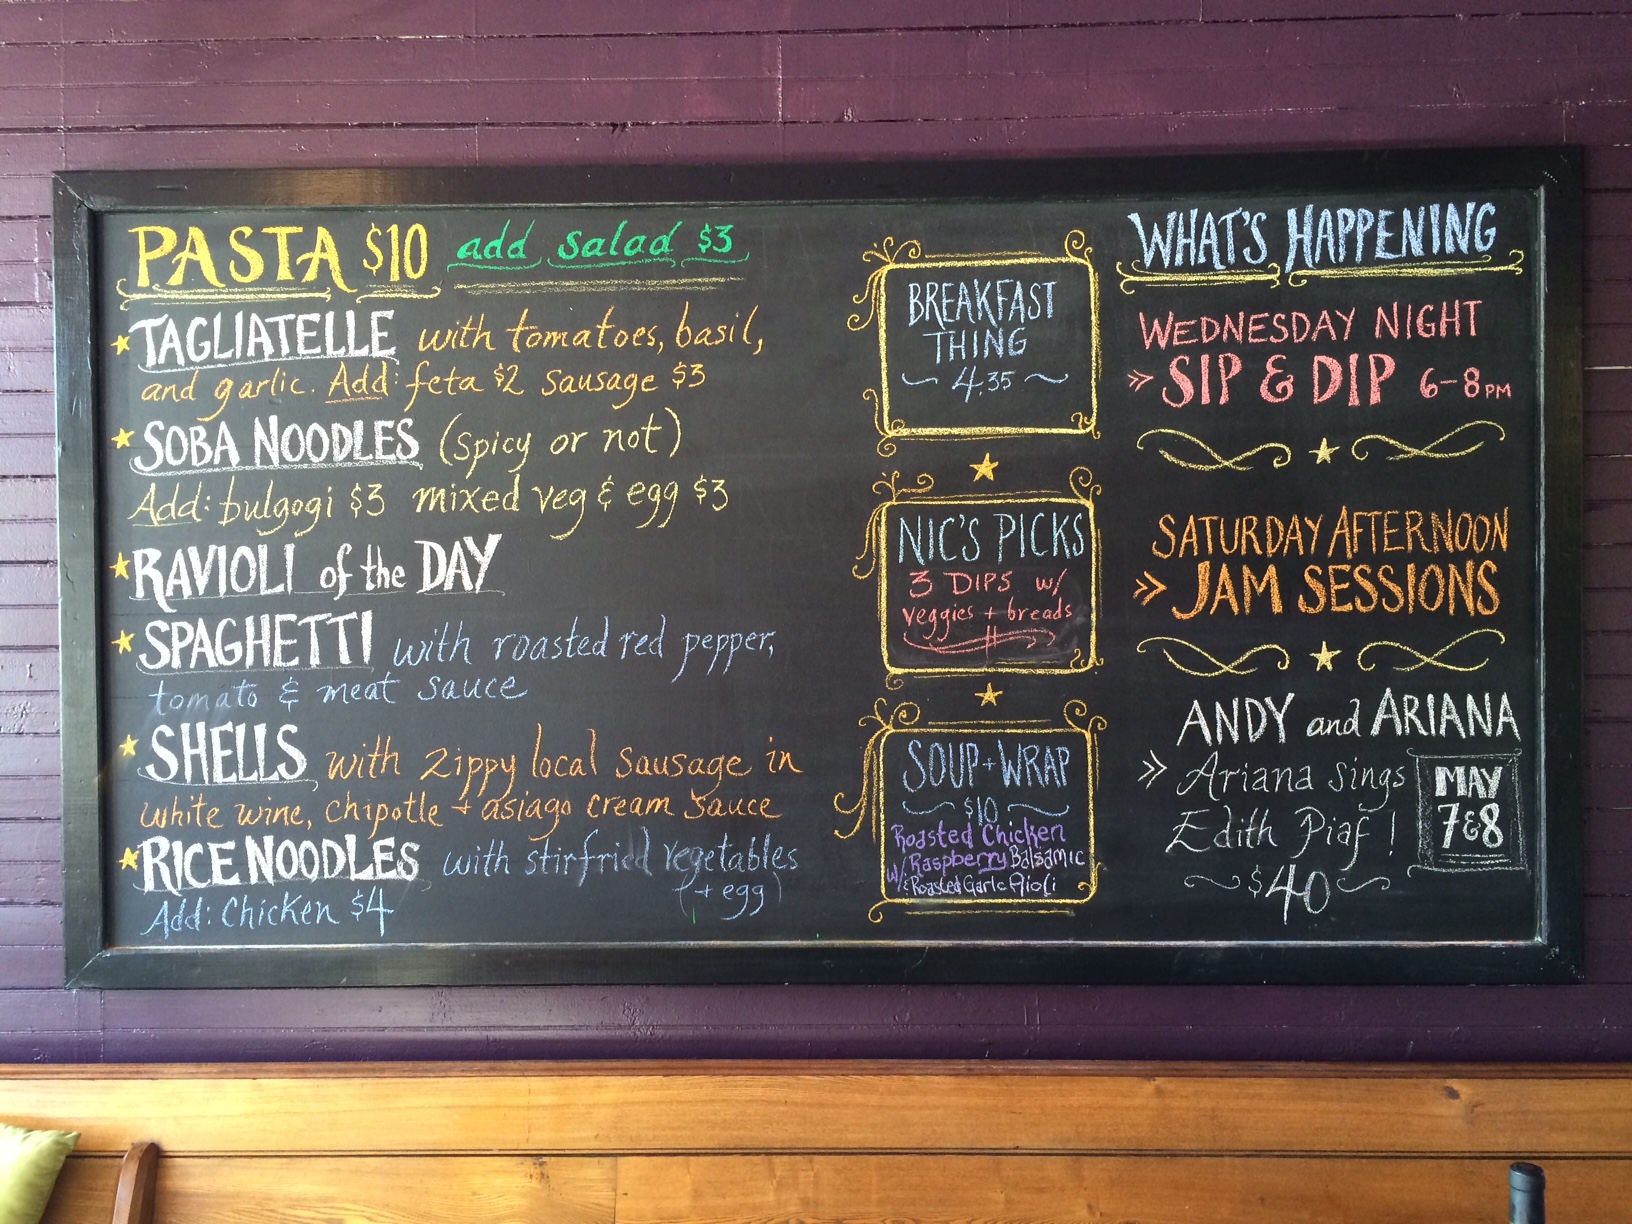 PASTA $10 add salad $3
TAGLIATELLE with tomatoes, basil,
and garlic. Add: feta $2 sausage $3
SOBA NOODLES (spicy or not)
Add: bulgogi $3 mixed veg & egg $3
RAVIOLI of the DAY
SPAGHETTI with roasted red pepper,
tomato & meat sauce
SHELLS with zippy local sausage in
white wine, chipotle + asiago cream sauce
RICE NOODLES with stirfried vegetables
(+ egg)
Add: Chicken $4
BREAKFAST
THING
4.35
NIC'S PICKS
3 DIPS w/
veggies + breads
SOUP + WRAP
$10
Roasted Chicken
w/ Raspberry Balsamic
& Roasted Garlic Aioli
WHAT'S HAPPENING
WEDNESDAY NIGHT
» SIP & DIP 6-8PM
SATURDAY AFTERNOON
» JAM SESSIONS
ANDY and ARIANA
» Ariana sings
Edith Piaf!
$40
MAY
7&8